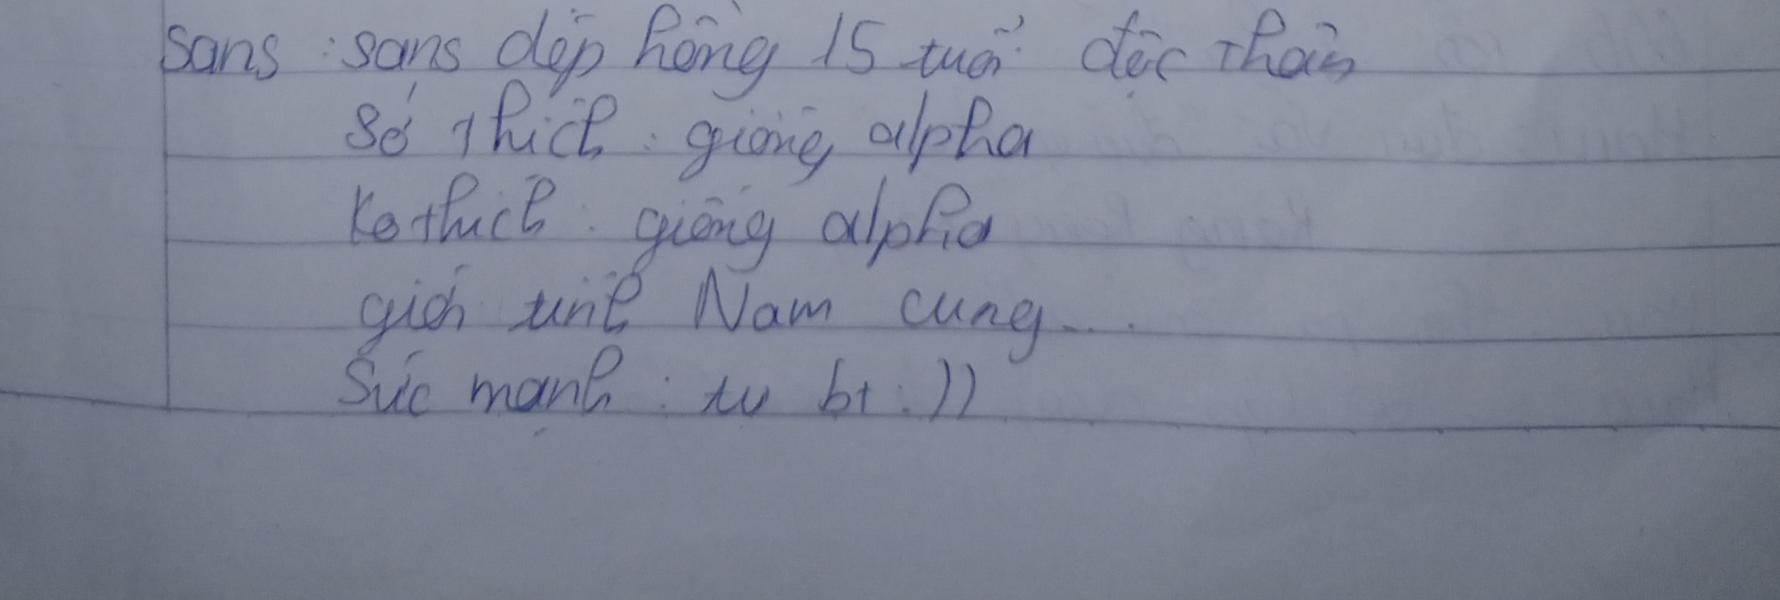 Sans : sans dép hồng 15 tuổi độc thân
Sở thích : giống alpha
Ko thích : giống alpha
giới tính Nam cung....
Sức mạnh : tự bt :))